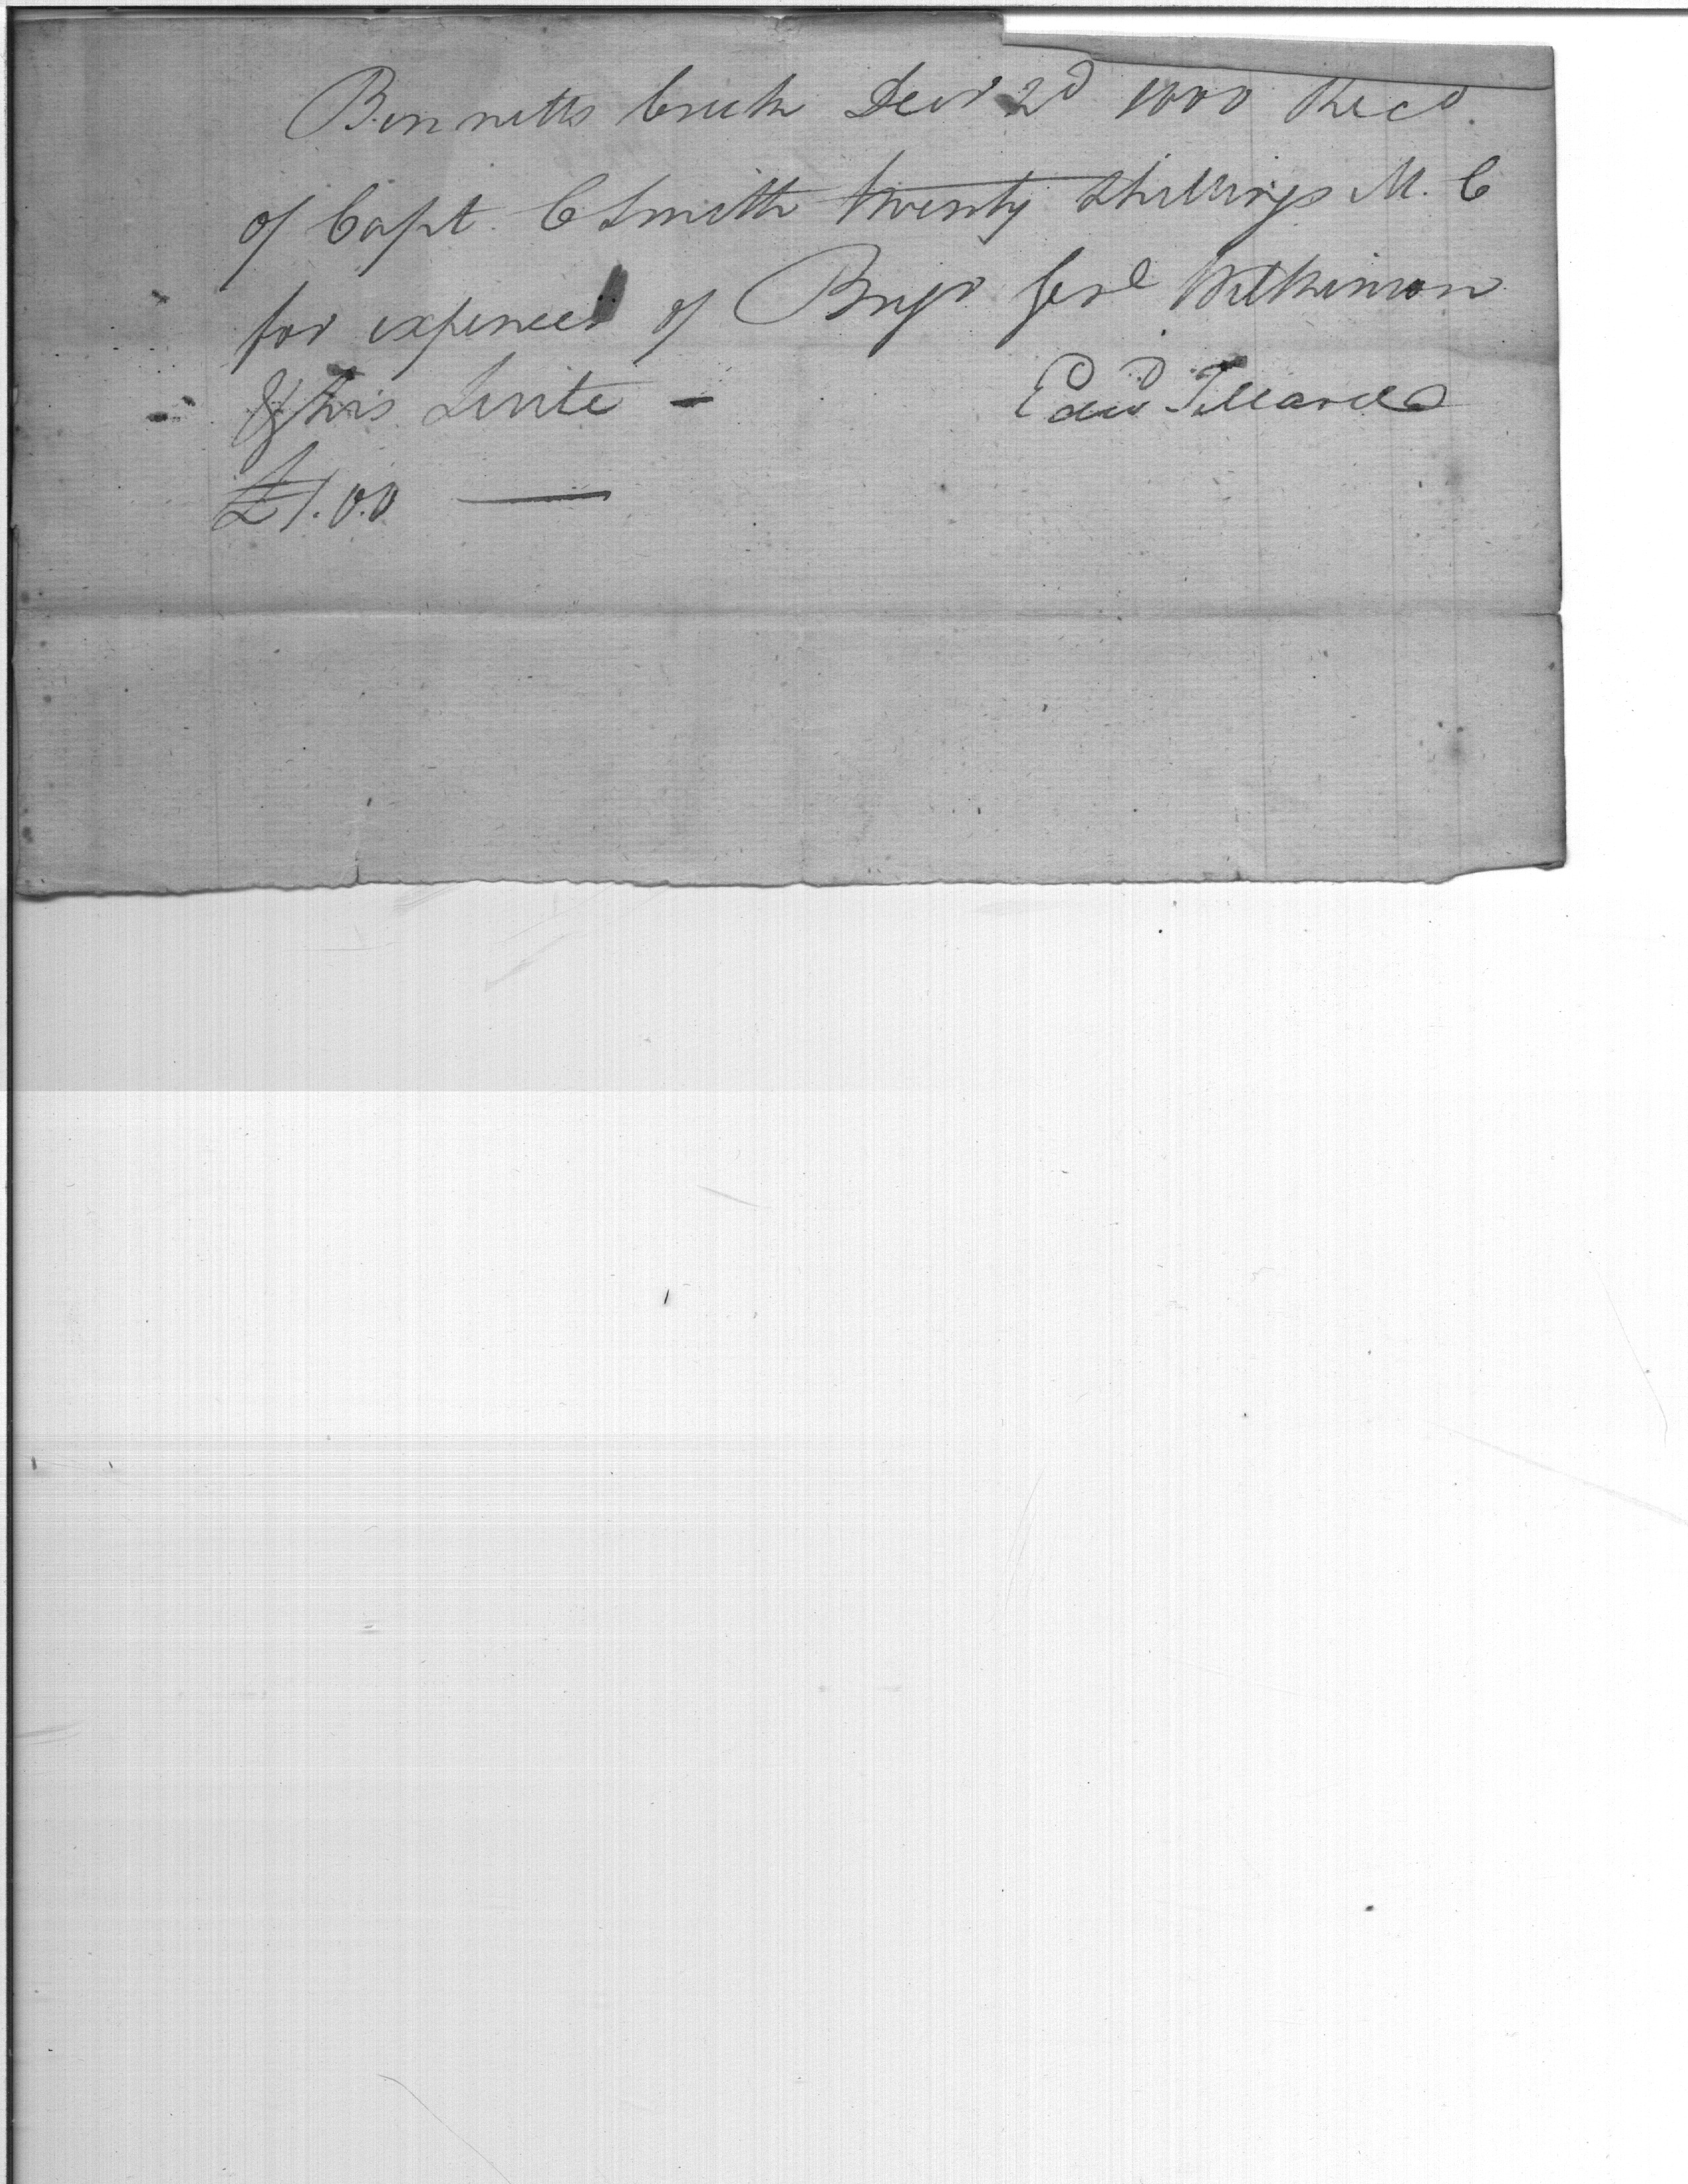 Bennetts Creek Decr 2d 1800 Recd.
of Capt. C Smith twenty shillings M. C
for expences of Brigr Genl Wilkinson
& his Suite -
Edwd Tillard
£1.0.0 —